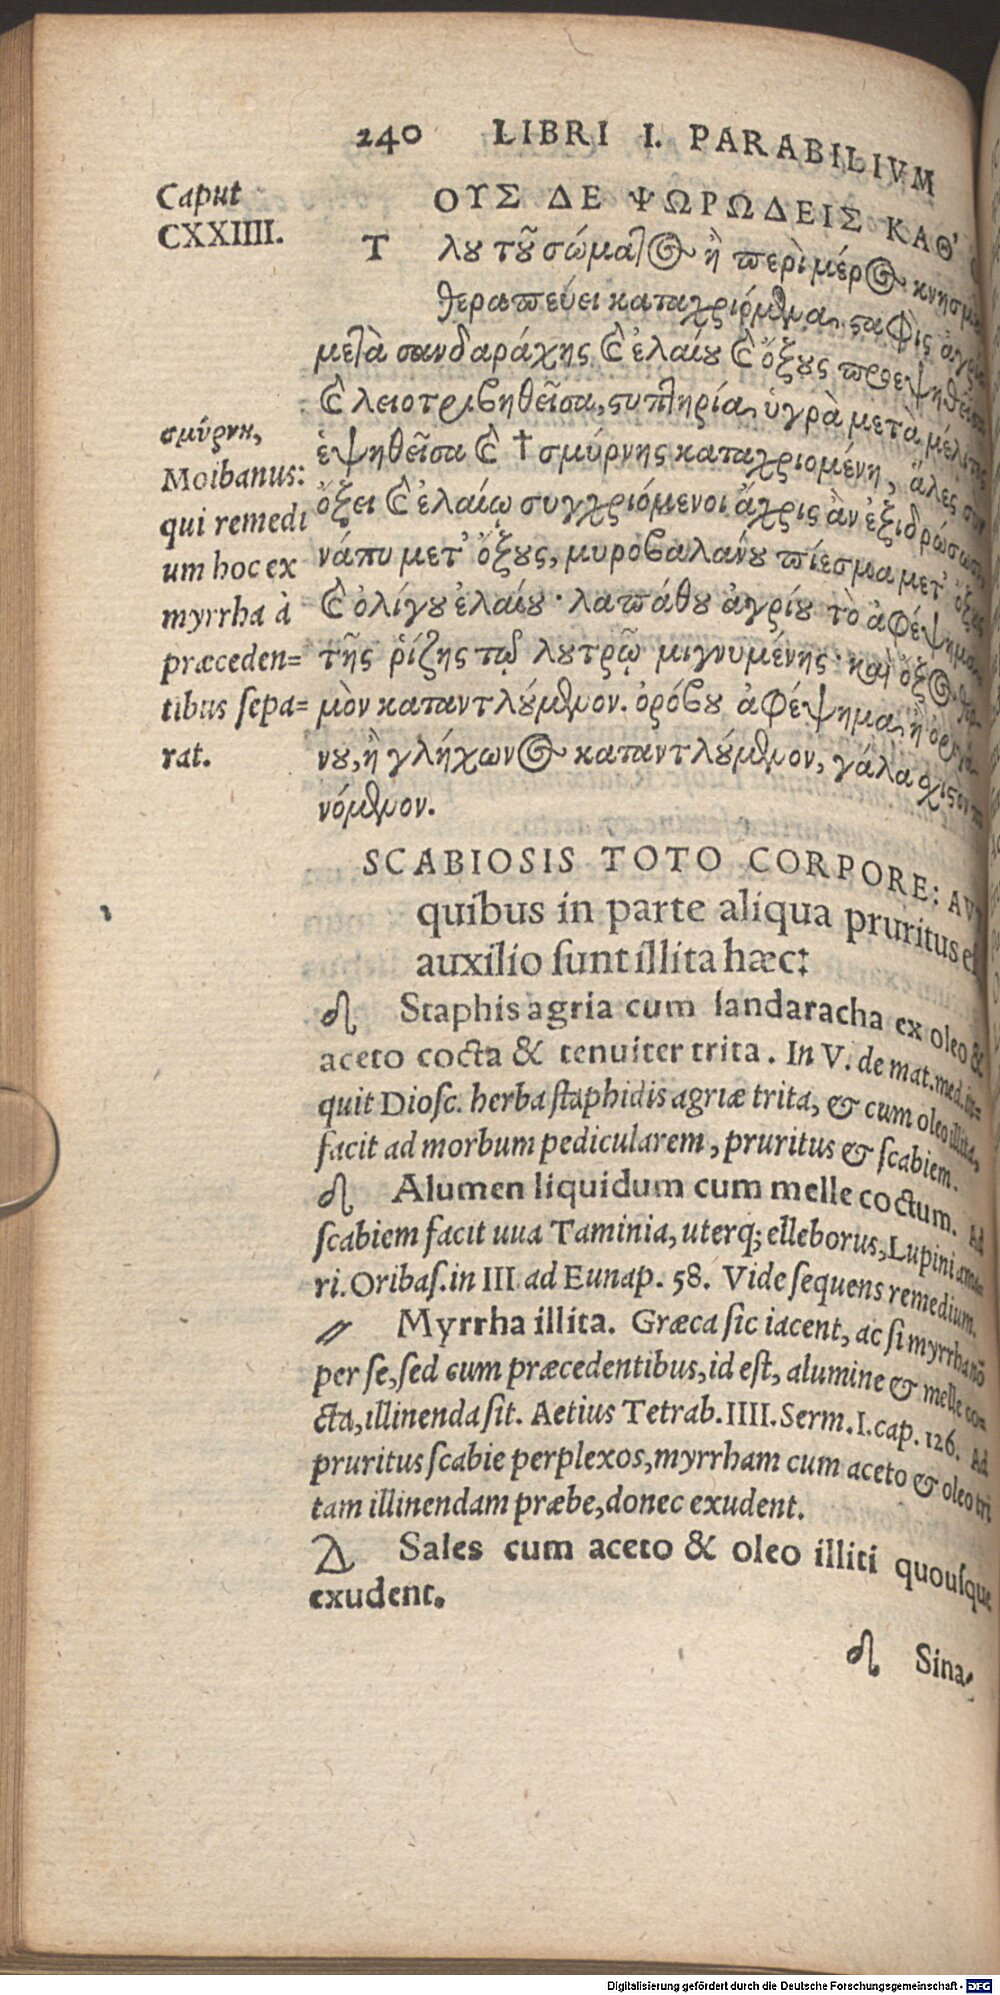 240 LIBRI I. PARABILIVM
Caput
CXXIIII.
ΟΥΣ ΔΕ ΨΩΡΩΔΕΙΣ ΚΑΘ'
Τ λου τοῦ σώματος ἢ περὶ μέρος
θεραπεύει καταχριόμενα, σταφὶς
μετὰ σανδαράχης καὶ ἐλαίου καὶ ὄξους
καὶ λειοτριβηθεῖσα, στυπτηρία ὑγρὰ μετὰ μέλιτος
ἑψηθεῖσα καὶ † σμύρνης καταχριομένη, ἅλες σὺν
ὄξει καὶ ἐλαίῳ συγχριόμενοι ἄχρις ἂν ἐξιδρώσωσι
νάπυ μετ' ὄξους, μυροβαλάνου πίεσμα μετ' ὄξους
καὶ ὀλίγου ἐλαίου· λαπάθου ἀγρίου τὸ ἀφέψημα
τῆς ῥίζης τῷ λουτρῷ μιγνυμένης· καὶ ὄξος
μὸν καταντλούμενον. ὀρόβου ἀφέψημα, ἢ
νου, ἢ γλήχωνος καταντλούμενον, γάλα
νόμενον.
σμύρνη,
Moibanus:
qui remedi
um hoc ex
myrrha à
præceden=
tibus sepa=
rat.
SCABIOSIS TOTO CORPORE: AVT
quibus in parte aliqua pruritus
auxilio sunt illita hæc:
♌ Staphis agria cum sandaracha ex oleo &
aceto cocta & tenuiter trita. In V. de mat. med. in=
quit Diosc. herba staphidis agriæ trita, & cum oleo illita,
facit ad morbum pedicularem, pruritus & scabiem.
♌ Alumen liquidum cum melle coctum. Ad
scabiem facit uua Taminia, uterq; elleborus, Lupini ama=
ri. Oribas. in III ad Eunap. 58. Vide sequens remedium.
Myrrha illita. Græca sic iacent, ac si myrrha nō
per se, sed cum præcedentibus, id est, alumine & melle co=
cta, illinenda sit. Aetius Tetrab. IIII. Serm. I. cap. 126. Ad
pruritus scabie perplexos, myrrham cum aceto & oleo tri
tam illinendam præbe, donec exudent.
Sales cum aceto & oleo illiti quousque
exudent.
♌ Sina-
Digitalisierung gefördert durch die Deutsche Forschungsgemeinschaft - DFG